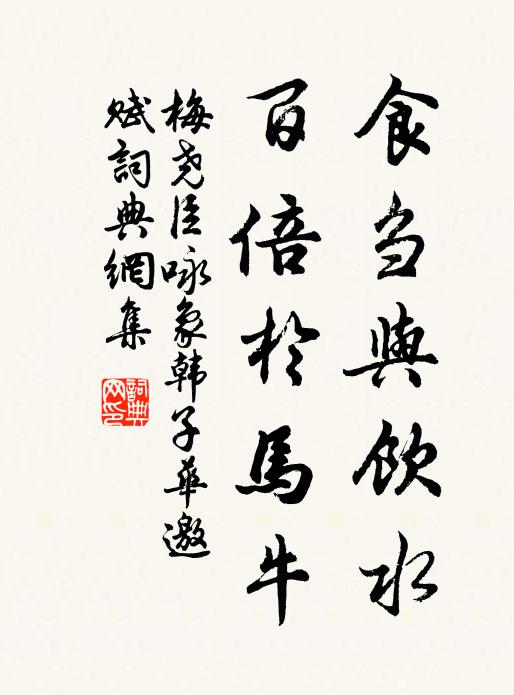 食芻與飲水
百倍於馬牛
梅堯臣咏象韩子華邀
賦詞典網集
詞典網印